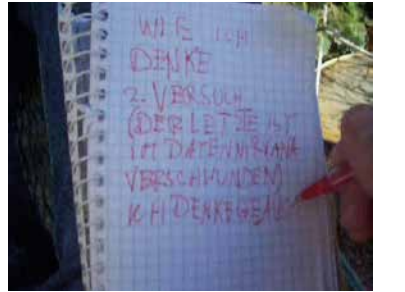 WIE ICH
DENKE
2. VERSUCH
(DER LETZTE IST
IM DATENNIRVANA
VERSCHWUNDEN)
ICH DENKE GERA